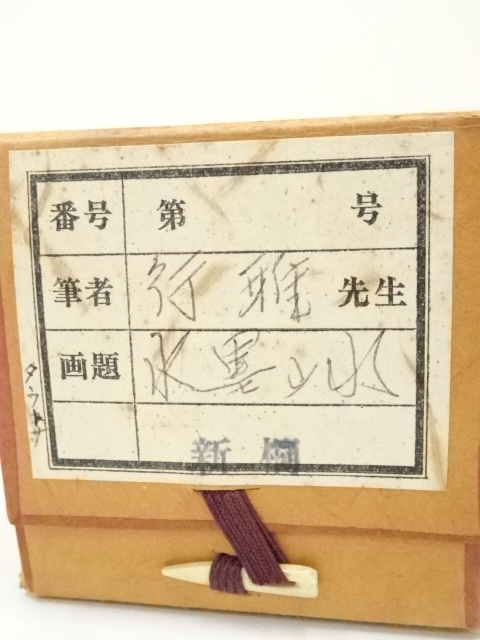 番号 第 号
筆者 行雅 先生
画題 水墨山水
新桐
タウナ